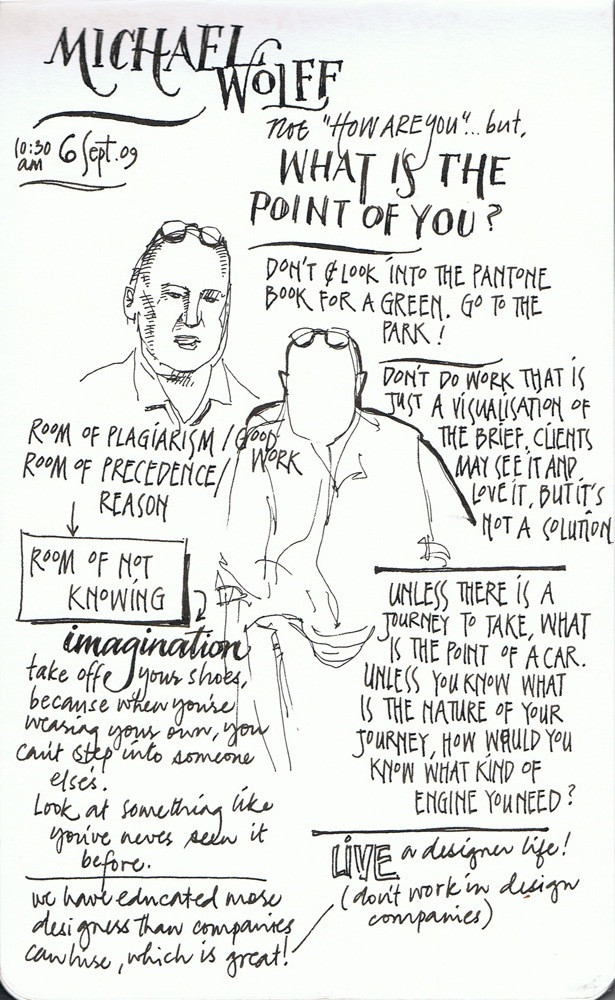 MICHAEL
WOLFF
10:30 am 6 Sept. 09
not "HOW ARE YOU"... but,
WHAT IS THE
POINT OF YOU?
DON'T LOOK INTO THE PANTONE
BOOK FOR A GREEN. GO TO THE
PARK!
DON'T DO WORK THAT IS
JUST A VISUALISATION OF
THE BRIEF. CLIENTS
MAY SEE IT AND
LOVE IT, BUT IT'S
NOT A SOLUTION
ROOM OF PLAGIARISM / GOOD
WORK
ROOM OF PRECEDENCE /
REASON
ROOM OF NOT
KNOWING
imagination
take off your shoes,
because when you're
wearing your own, you
can't step into someone
else's.
Look at something like
you've never seen it
before.
we have educated more
designers than companies
can hire, which is great!
UNLESS THERE IS A
JOURNEY TO TAKE, WHAT
IS THE POINT OF A CAR.
UNLESS YOU KNOW WHAT
IS THE NATURE OF YOUR
JOURNEY, HOW WOULD YOU
KNOW WHAT KIND OF
ENGINE YOU NEED?
LIVE a designer life!
(don't work in design
companies)